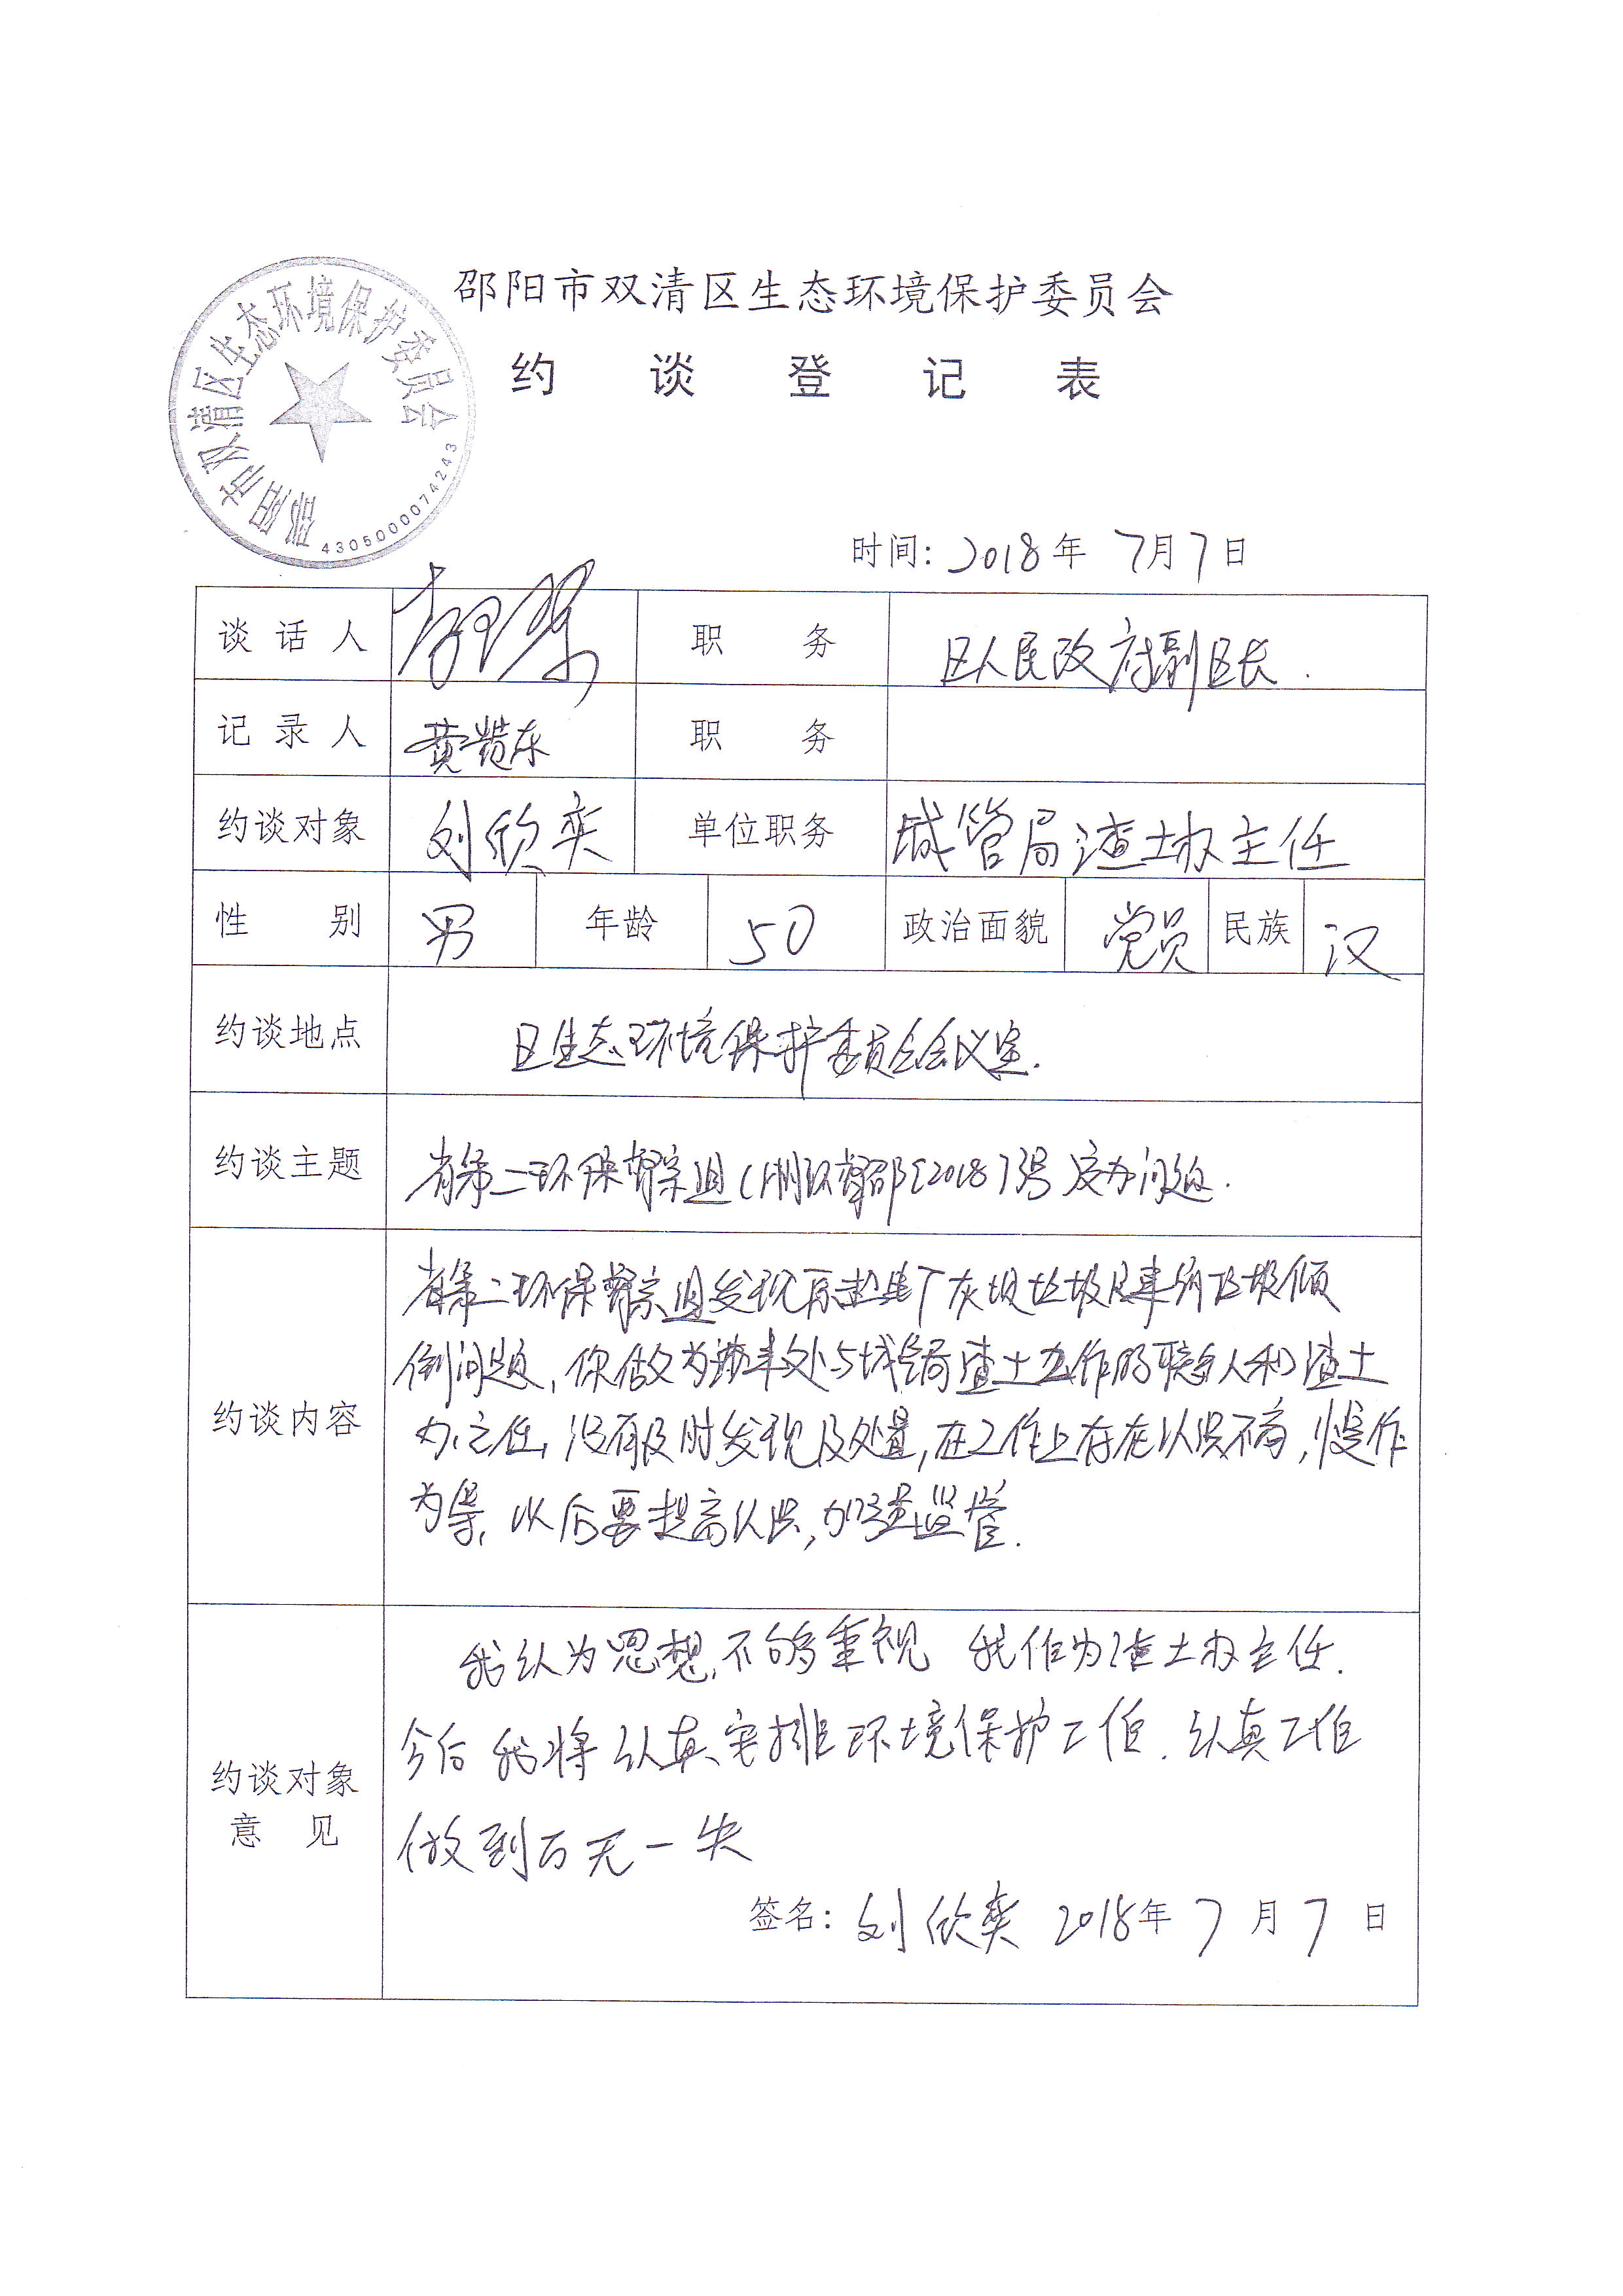 邵阳市双清区生态环境保护委员会
约谈登记表
邵阳市双清区生态环境保护委员会
4305000074243
时间：2018年 7月7日
谈话人 职务 区人民政府副区长.
记录人 黄 东 职务
约谈对象 刘欣奕 单位职务 城管局渣土办主任
性别 男 年龄 50 政治面貌 党员 民族 汉
约谈地点 区生态环境保护委员会会议室.
约谈主题 省第二环保督察组（湘环督邵[2018]3号 交办问题.
约谈内容
省第二环保督察组发现原 厂灰坝垃圾及建筑垃圾倾
倒问题，你做为 处与城管局渣土办 作的联系人和渣土
办主任，没有及时发现及处置，在工作上存在认识不高，慢作
为等，以后要提高认识，加强监管.
约谈对象
意见
我认为思想，不够重视 我作为渣土办主任.
今后我将认真安排环境保护工作. 认真工作
做到万无一失
签名：刘欣奕 2018年 7月7日